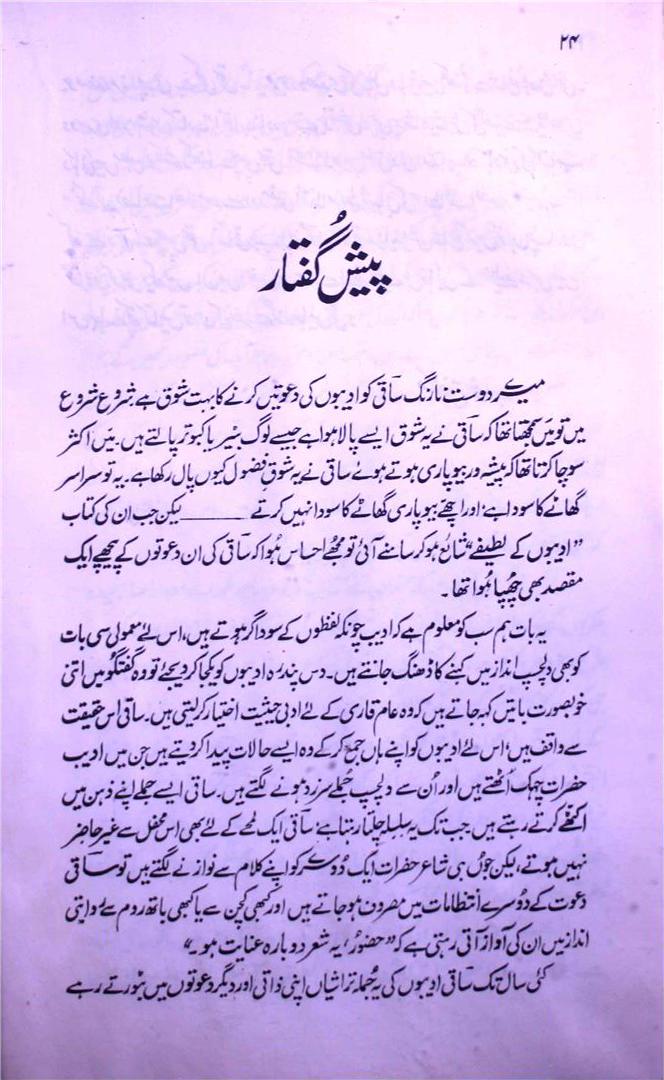 ۲۴
پیش گُفتار
میرے دوست نارنگ ساقی کو ادیبوں کی دعوتیں کرنے کا بہت شوق ہے۔ شروع شروع
میں تو میں سمجھتا تھا کہ ساقی نے یہ شوق ایسے پالا ہوا ہے جیسے لوگ بٹیر یا کبوتر پالتے ہیں۔ میں اکثر
سوچا کرتا تھا کہ پیشہ ور بیوپاری ہوتے ہوئے ساقی نے یہ شوقِ فضول کیوں پال رکھا ہے۔ یہ تو سراسر
گھاٹے کا سودا ہے؛ اور اچھے بیوپاری گھاٹے کا سودا نہیں کرتے ——— لیکن جب ان کی کتاب
”ادیبوں کے لطیفے“ شائع ہو کر سامنے آئی، تو مجھے احساس ہُوا کہ ساقی کی ان دعوتوں کے پیچھے ایک
مقصد بھی چھُپا ہُوا تھا۔
یہ بات ہم سب کو معلوم ہے کہ ادیب چونکہ لفظوں کے سوداگر ہوتے ہیں، اس لئے معمولی سی بات
کو بھی دلچسپ انداز میں کہنے کا ڈھنگ جانتے ہیں۔ دس پندرہ ادیبوں کو یکجا کر دیجئے تو وہ گفتگو میں اتنی
خوبصورت باتیں کہہ جاتے ہیں کہ وہ عام قاری کے لئے ادبی حیثیت اختیار کر لیتی ہیں۔ ساقی اس حقیقت
سے واقف ہیں، اس لئے ادیبوں کو اپنے ہاں جمع کر کے وہ ایسے حالات پیدا کر دیتے ہیں جن میں ادیب
حضرات چہک اُٹھتے ہیں اور اُن سے دلچسپ جُملے سرزد ہونے لگتے ہیں۔ ساقی ایسے جملے اپنے ذہن میں
اکٹھے کرتے رہتے ہیں۔ جب تک یہ سلسلہ چلتا رہتا ہے ساقی ایک لمحے کے لئے بھی اس محفل سے غیر حاضر
نہیں ہوتے، لیکن جوں ہی شاعر حضرات ایک دُوسرے کو اپنے کلام سے نوازنے لگتے ہیں تو ساقی
دعوت کے دُوسرے انتظامات میں مصروف ہو جاتے ہیں اور کبھی کچن سے یا کبھی باتھ روم سے روایتی
انداز میں ان کی آواز آتی رہتی ہے کہ ”حضور، یہ شعر دوبارہ عنایت ہو۔“
کئی سال تک ساقی ادیبوں کی یہ جُملہ تراشیاں اپنی ذاتی اور دیگر دعوتوں میں بٹورتے رہے